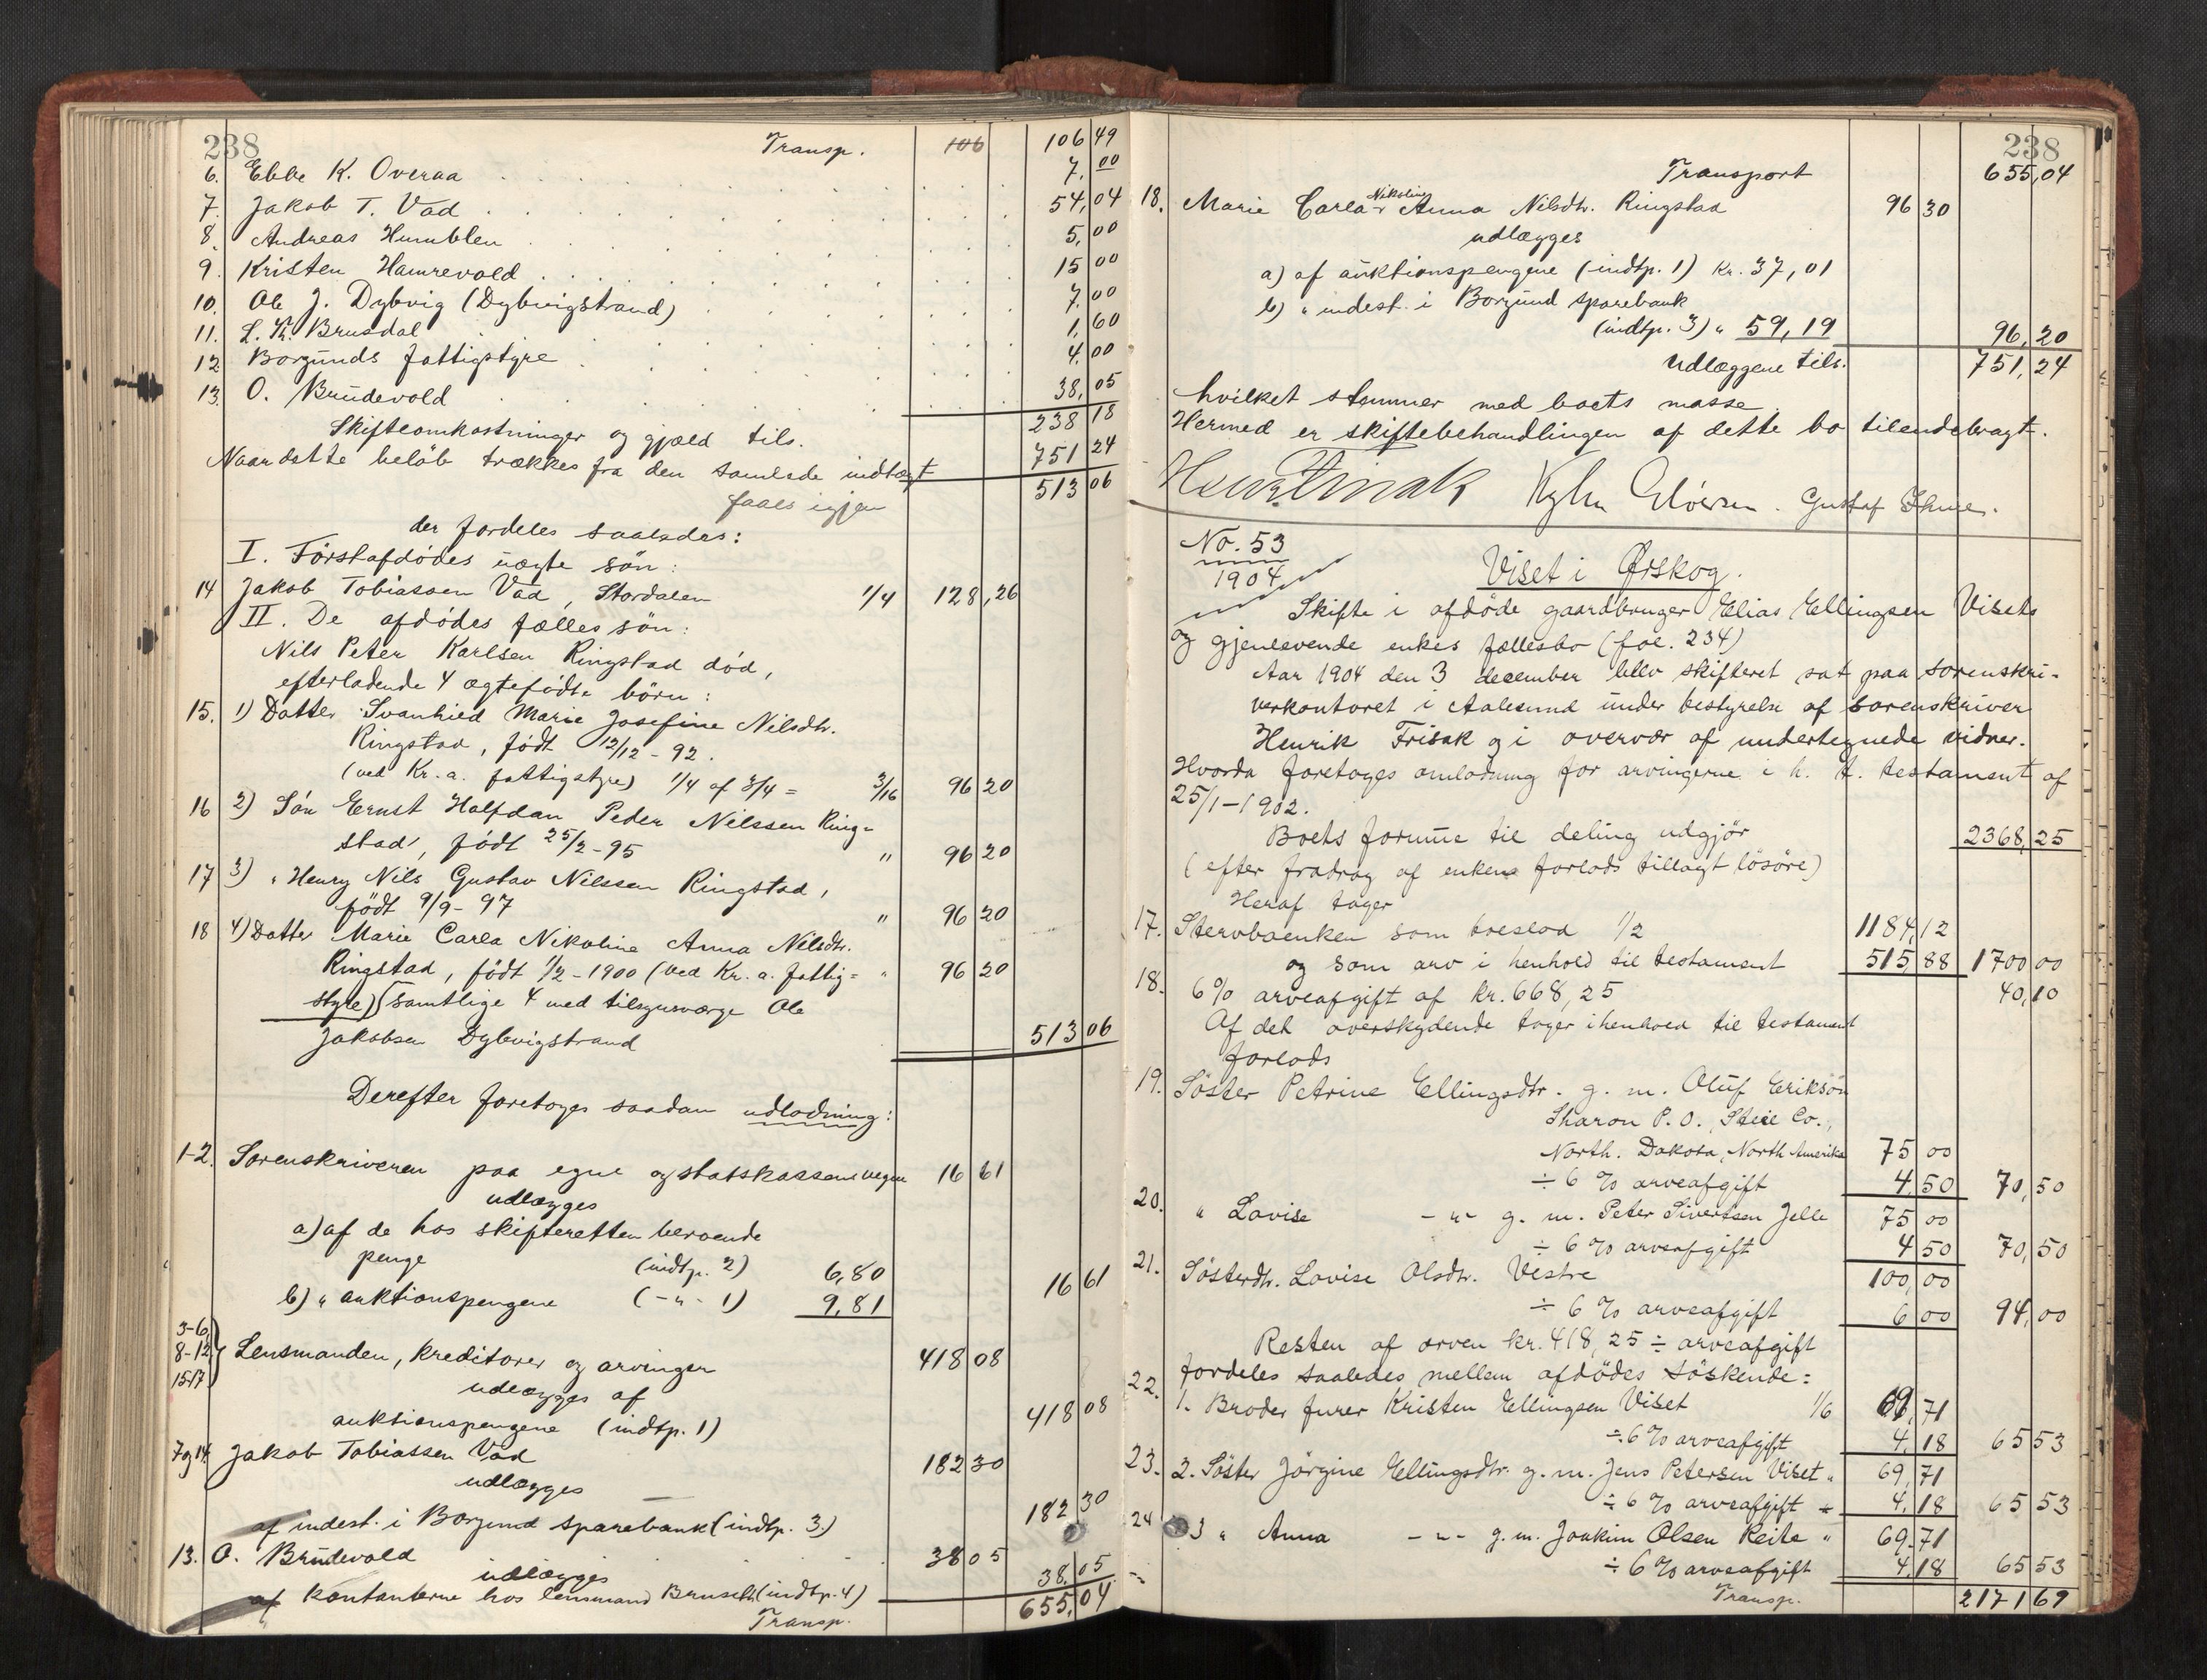 238
Transp. 106 106 49
6. Ebbe K. Overaa 7, 00
7. Jakob T. Vad 54, 04
8. Andreas Humblen 5, 00
9. Kristen Hamrevold 15 00
10. Ole J. Dybvig (Dybvigstrand) 7, 00
11. L. Kr. Brusdal 1, 60
12 Borgunds fattigstyre 4, 00
13. O. Brudevold 38, 05
Skifteomkostninger og gjæld tils. 238 18
Naar dette beløb trækkes fra den samlede indtægt 751 24
faaes igjen 513 06
der fordeles saaledes:
I. Førstafdødes uægte søn:
14 Jakob Tobiassen Vad, Stordalen 1/4 128, 26
II. De afdødes fælles søn:
Nils Peter Karlsen Ringstad død,
efterladende 4 ægtefødte børn:
15. 1) Datter Svanhied Marie Josefine Nilsdtr.
Ringstad, født 12/12 - 92.
(ved Kr. a. fattigstyre) 1/4 af 3/4 = 3/16 96 20
16 2) Søn Ernst Halfdan Peder Nilssen Ring=
stad, født 25/2 - 95 " 96 20
17 3) " Henry Nils Gustav Nilssen Ringstad,
født 9/9 - 97 " 96 20
18 4) Datter Marie Carla Nikoline Anna Nilsdtr.
Ringstad, født 1/2 - 1900 (ved Kr. a. fattig= " 96 20
styre) (samtlige 4 med tilsynsværge Ole
Jakobsen Dybvigstrand 513 06
Derefter foretoges saadan udlodning:
1-2. Sorenskriveren paa egne og statskassens vegne 16 61
udlægges
a) af de hos skifteretten beroende
penge (indtp. 2) 6,80
b) " auktionspengene (-"- 1) 9,81 16 61
3-6,
8-12
15-17 Lensmanden, kreditorer og arvinger 418 08
udlægges af
auktionspengene (indtp. 1) 418 08
7 og 14. Jakob Tobiassen Vad 182 30
udlægges
af indest. i Borgund sparebank (indtp. 3.) 182 30
13. O. Brudevold 38 05
udlægges
af kontanterne hos lensmand (indtp. 4) 38, 05
Transp. 655, 04
238
Transport 655, 04
18. Marie Carla Nikoline Anna Nilsdtr. Ringstad 96 30
udlægges
a) af auktionspengene (indtp. 1) Kr. 37,01
b) " indest. i Borgund sparebank
(indtp. 3) " 59,19 96, 20
Udlæggene tils. 751, 24
hvilket stemmer med boets masse.
Hermed er skiftebehandlingen af dette bo tilendebragt.
No. 53
1904
Viset i Ørskog.
Skifte i afdøde gaardbruger Elias Ellingsen Visets
og gjenlevende enkes fællesbo (fol. 234)
Aar 1904 den 3 december blev skifteret sat paa sorenskri-
verkontoret i Aalesund under bestyrelse af sorenskriver
Henrik Frisak og i overvær af undertegnede vidner.
Hvorda foretoges omlodning for arvingerne i h. t. testament af
25/1 - 1902.
Boets formue til deling udgjør 2368, 25
(efter fradrag af enkens forlods tillagt løsøre)
Heraf tager
17. Stervboenken som boeslod 1/2 1184, 12
og som arv i henhold til testament 515 88 1700 00
18. 6% arveafgift af kr. 668,25 40, 10
Af det overskydende tager i henhold til testament
forlods
19. Søster Petrine Ellingsdtr. g. m. Oluf Erikson
Sharon P. O., Stele Co.,
North. Dakota, North Amerika 75 00
÷ 6 % arveafgift 4, 50 70, 50
20. " Lovise -"- g. m. Peter Sivertsen Jelle 75 00
÷ 6 % arveafgift 4 50 70, 50
21. Søsterdtr. Lovise Olsdtr. Vestre 100, 00
÷ 6 % arveafgift 6 00 94, 00
Resten af arven kr. 418,25 ÷ arveafgift
fordeles saaledes mellem afdødes søskende:
22. 1. Broder furer Kristen Ellingsen Viset 1/6 69, 71
÷ 6 % arveafgift 4, 18 65 53
23. 2. Søster Jørgine Ellingsdtr. g. m. Jens Petersen Viset " 69, 71
÷ 6 % arveafgift 4, 18 65 53
24 3 " Anna -"- g. m. Joakim Olsen Reite " 69, 71
÷ 6 % arveafgift 4, 18 65 53
Transp. 2171 69